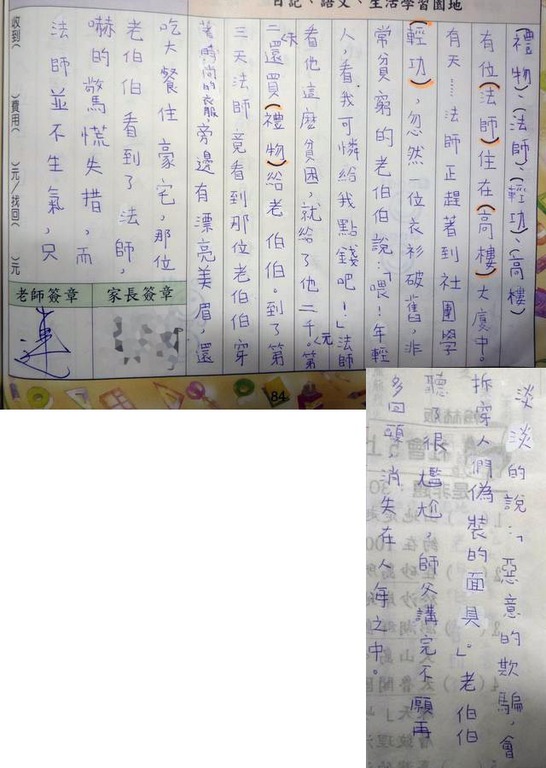 日記、語文、生活學習園地
(禮物)、(法師)、(輕功)、(高樓)
有位(法師)住在(高樓)大廈中。
有天……法師正趕著到社團學
(輕功),忽然一位衣衫破舊,非
常貧窮的老伯伯說:「喂!年輕
人,看我可憐給我點錢吧!」法師
看他這麼貧困,就給了他二千元。第
二次還買(禮物)給老伯伯。到了第
三天法師竟看到那位老伯伯穿
著時尚的衣服,旁邊有漂亮美眉,還
吃大餐住豪宅,那位
老伯伯看到了法師,
嚇的驚慌失措,而
法師並不生氣,只
收到( )費用( )元/找回( )元
家長簽章
老師簽章
84
淡淡的說:「惡意的欺騙,會
拆穿人們偽裝的面具。」老伯伯
聽了很尷尬,師父講完不願再
多回頭,消失在人海之中。